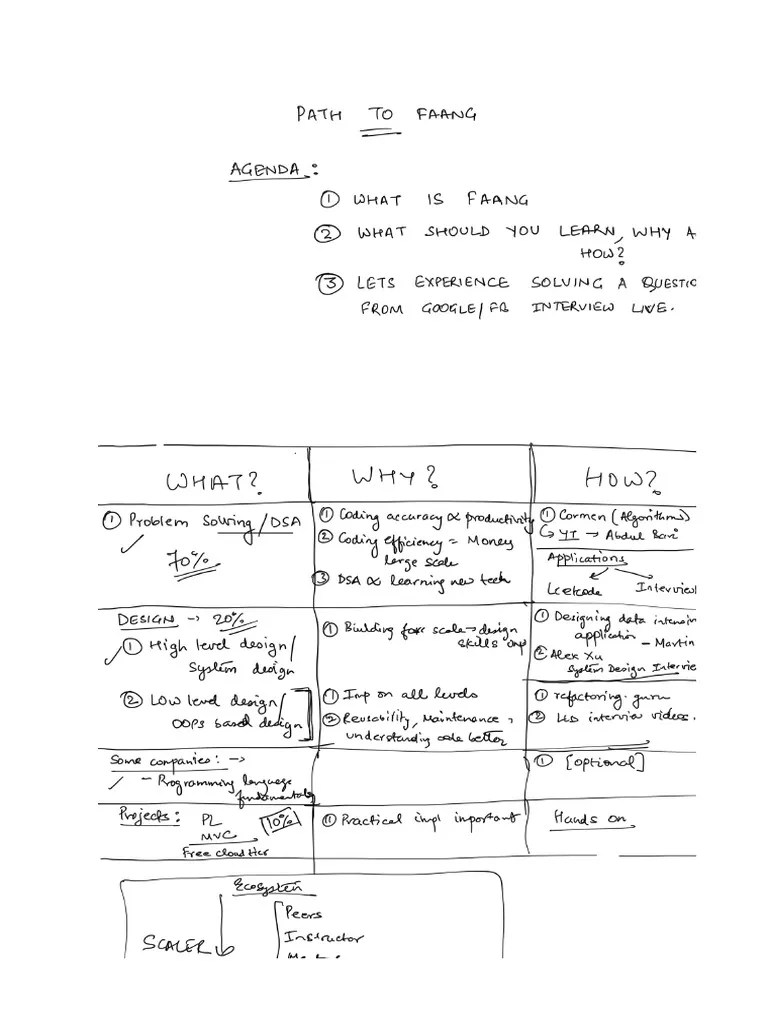 PATH TO FAANG
AGENDA :
① WHAT IS FAANG
② WHAT SHOULD YOU LEARN, WHY A
HOW?
③ LETS EXPERIENCE SOLVING A QUESTIO
FROM GOOGLE/FB INTERVIEW LIVE.
WHAT?
WHY?
HOW?
① Problem Solving/DSA
70%
① Coding accuracy ∝ productivity
② Coding efficiency = Money
large scale
③ DSA ∝ learning new tech
① Cormen (Algorithms)
↳ YT → Abdul Bari
Applications
Leetcode
Interview
DESIGN → 20%
① High level design/
System design
① Building for scale → design
skills imp
① Designing data intensiv
application
- Martin
② Alex Xu
System Design Intervie
② LOW level design/
OOPS based design
① Imp on all levels
② Reusability, Maintenance,
understanding code better
① refactoring.guru
② LLD interview videos.
Some companies: →
- Programming language
fundamentals
① [optional]
Projects: PL
MVC
10%
Free cloud tier
① Practical impl important
Hands on
Ecosystem
SCALER
Peers
Instructor